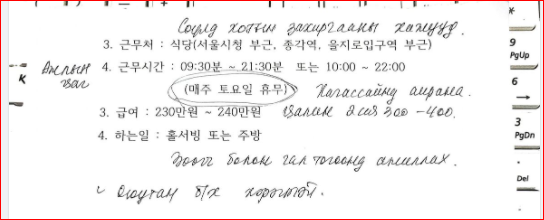 Соулд хотын захиргааны хажууд.
3. 근무처 : 식당(서울시청 부근, 종각역, 을지로입구역 부근)
Ажлын цаг
4. 근무시간 : 09:30분 ~ 21:30분 또는 10:00 ~ 22:00
(매주 토요일 휴무) Хагассайнд амрана.
3. 급여 : 230만원 ~ 240만원 Цалин 2 300 - 400.
4. 하는일 : 홀서빙 또는 주방
Зоогч болон гал тогоонд ажиллах.
Оюутан б/х хэрэгтэй.
K
9
PgUp
6
→
3
PgDn
.
Del